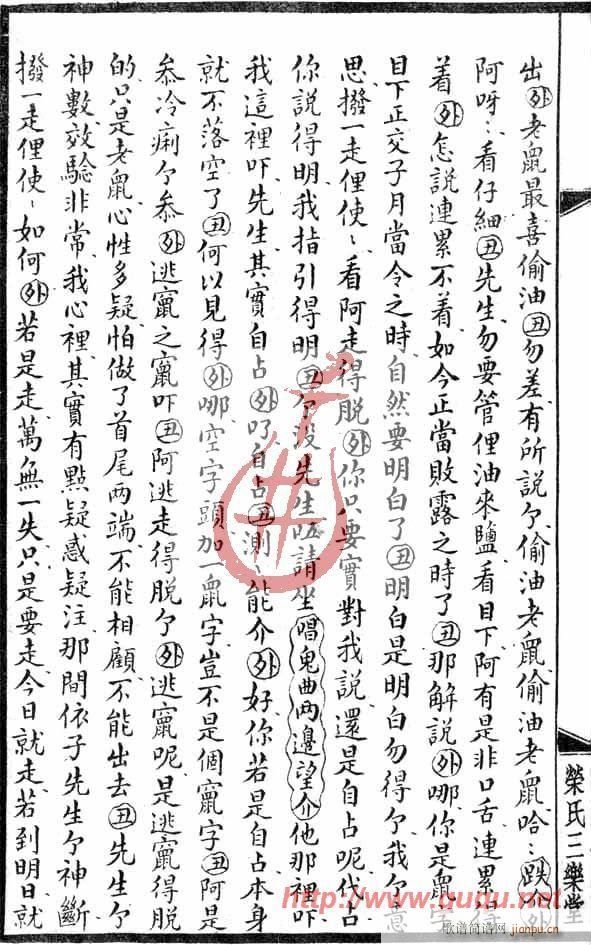 出外老鼠最喜偷油丑勿差有所説个偷油老鼠偷油老鼠哈〻跌介外
阿呀〻看仔細丑先生勿要管俚油來鹽看目下阿有是非口舌連累得
着外怎説連累不着如今正當敗露之時了丑那解説外哪你是鼠字
目下正交子月當令之時自然要明白了丑明白是明白勿得个我个意
思撥一走俚使〻看阿走得脱外你只要實對我説還是自占呢代占
你説得明我指引得明丑个没先生請坐唱鬼曲兩邊望介他那裡吓
我這裡吓先生其實自占外吖自占丑測〻能介外好你若是自占本身
就不落空了丑何以見得外哪空字頭加一鼠字豈不是個竄字丑阿是
叅冷痢个叅外逃竄之竄吓丑阿逃走得脱个外逃竄呢是逃竄得脱
的只是老鼠心性多疑怕做了首尾兩端不能相顧不能出去丑先生个
神數效驗非常我心裡其實有點疑惑疑注那間依子先生个神斷
撥一走俚使〻如何外若是走萬無一失只是要走今日就走若到明日就
榮氏三樂堂
http://www.ququ.net
歌譜簡譜网
jianpu.cn